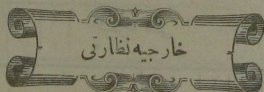 خارجيه نظارتى